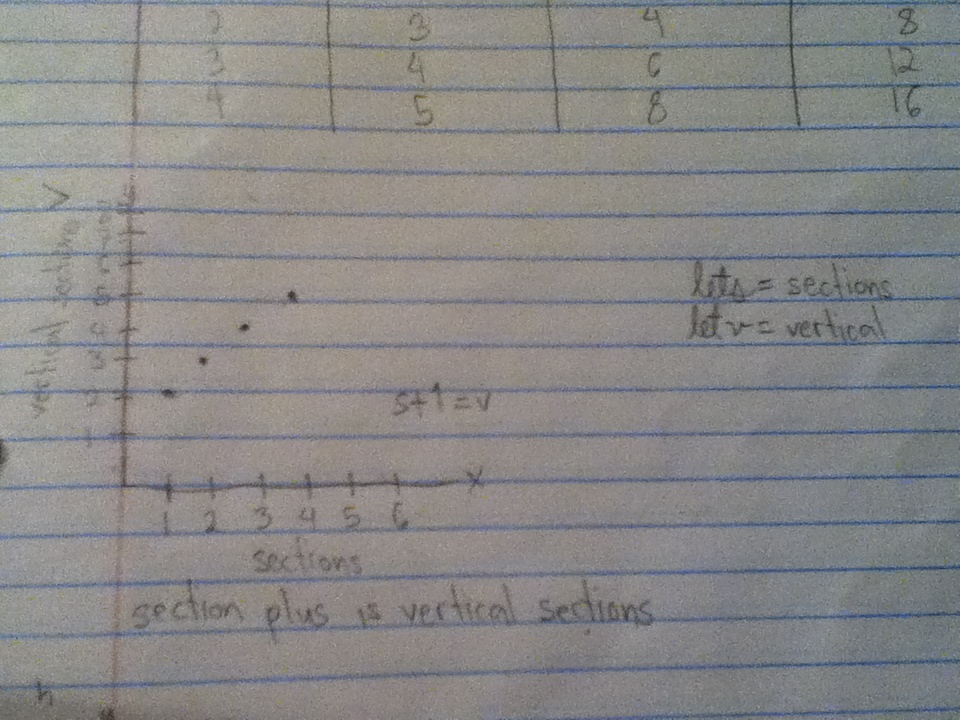 2 3 4 8
3 4 6 12
4 5 8 16
vertical sections V
5
4
3
2
1
let s = sections
let v = vertical
s+1=v
X
1 2 3 4 5 6
sections
section plus is vertical sections
h